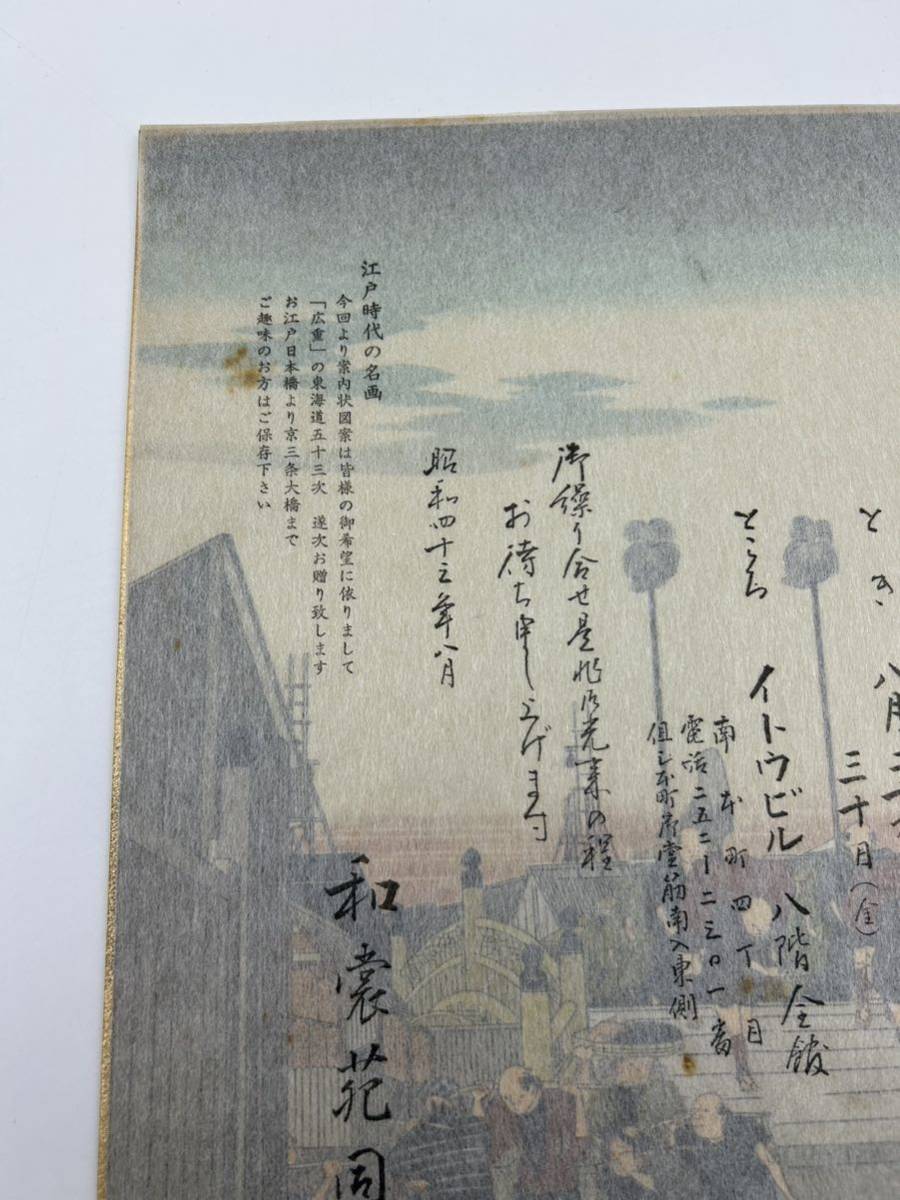 とき 八月二十
三十日(金)
ところ イトウビル 八階全館
南本町四丁目
電話二五二ー二三〇一番
但シ本町御堂筋南入東側
御繰り合せ是非御光来の程
お待ち申し上げます
昭和四十三年八月
和裳苑同
江戸時代の名画
今回より案内状図案は皆様の御希望に依りまして
「広重」の東海道五十三次 遂次お贈り致します
お江戸日本橋より京三条大橋まで
ご趣味のお方はご保存下さい